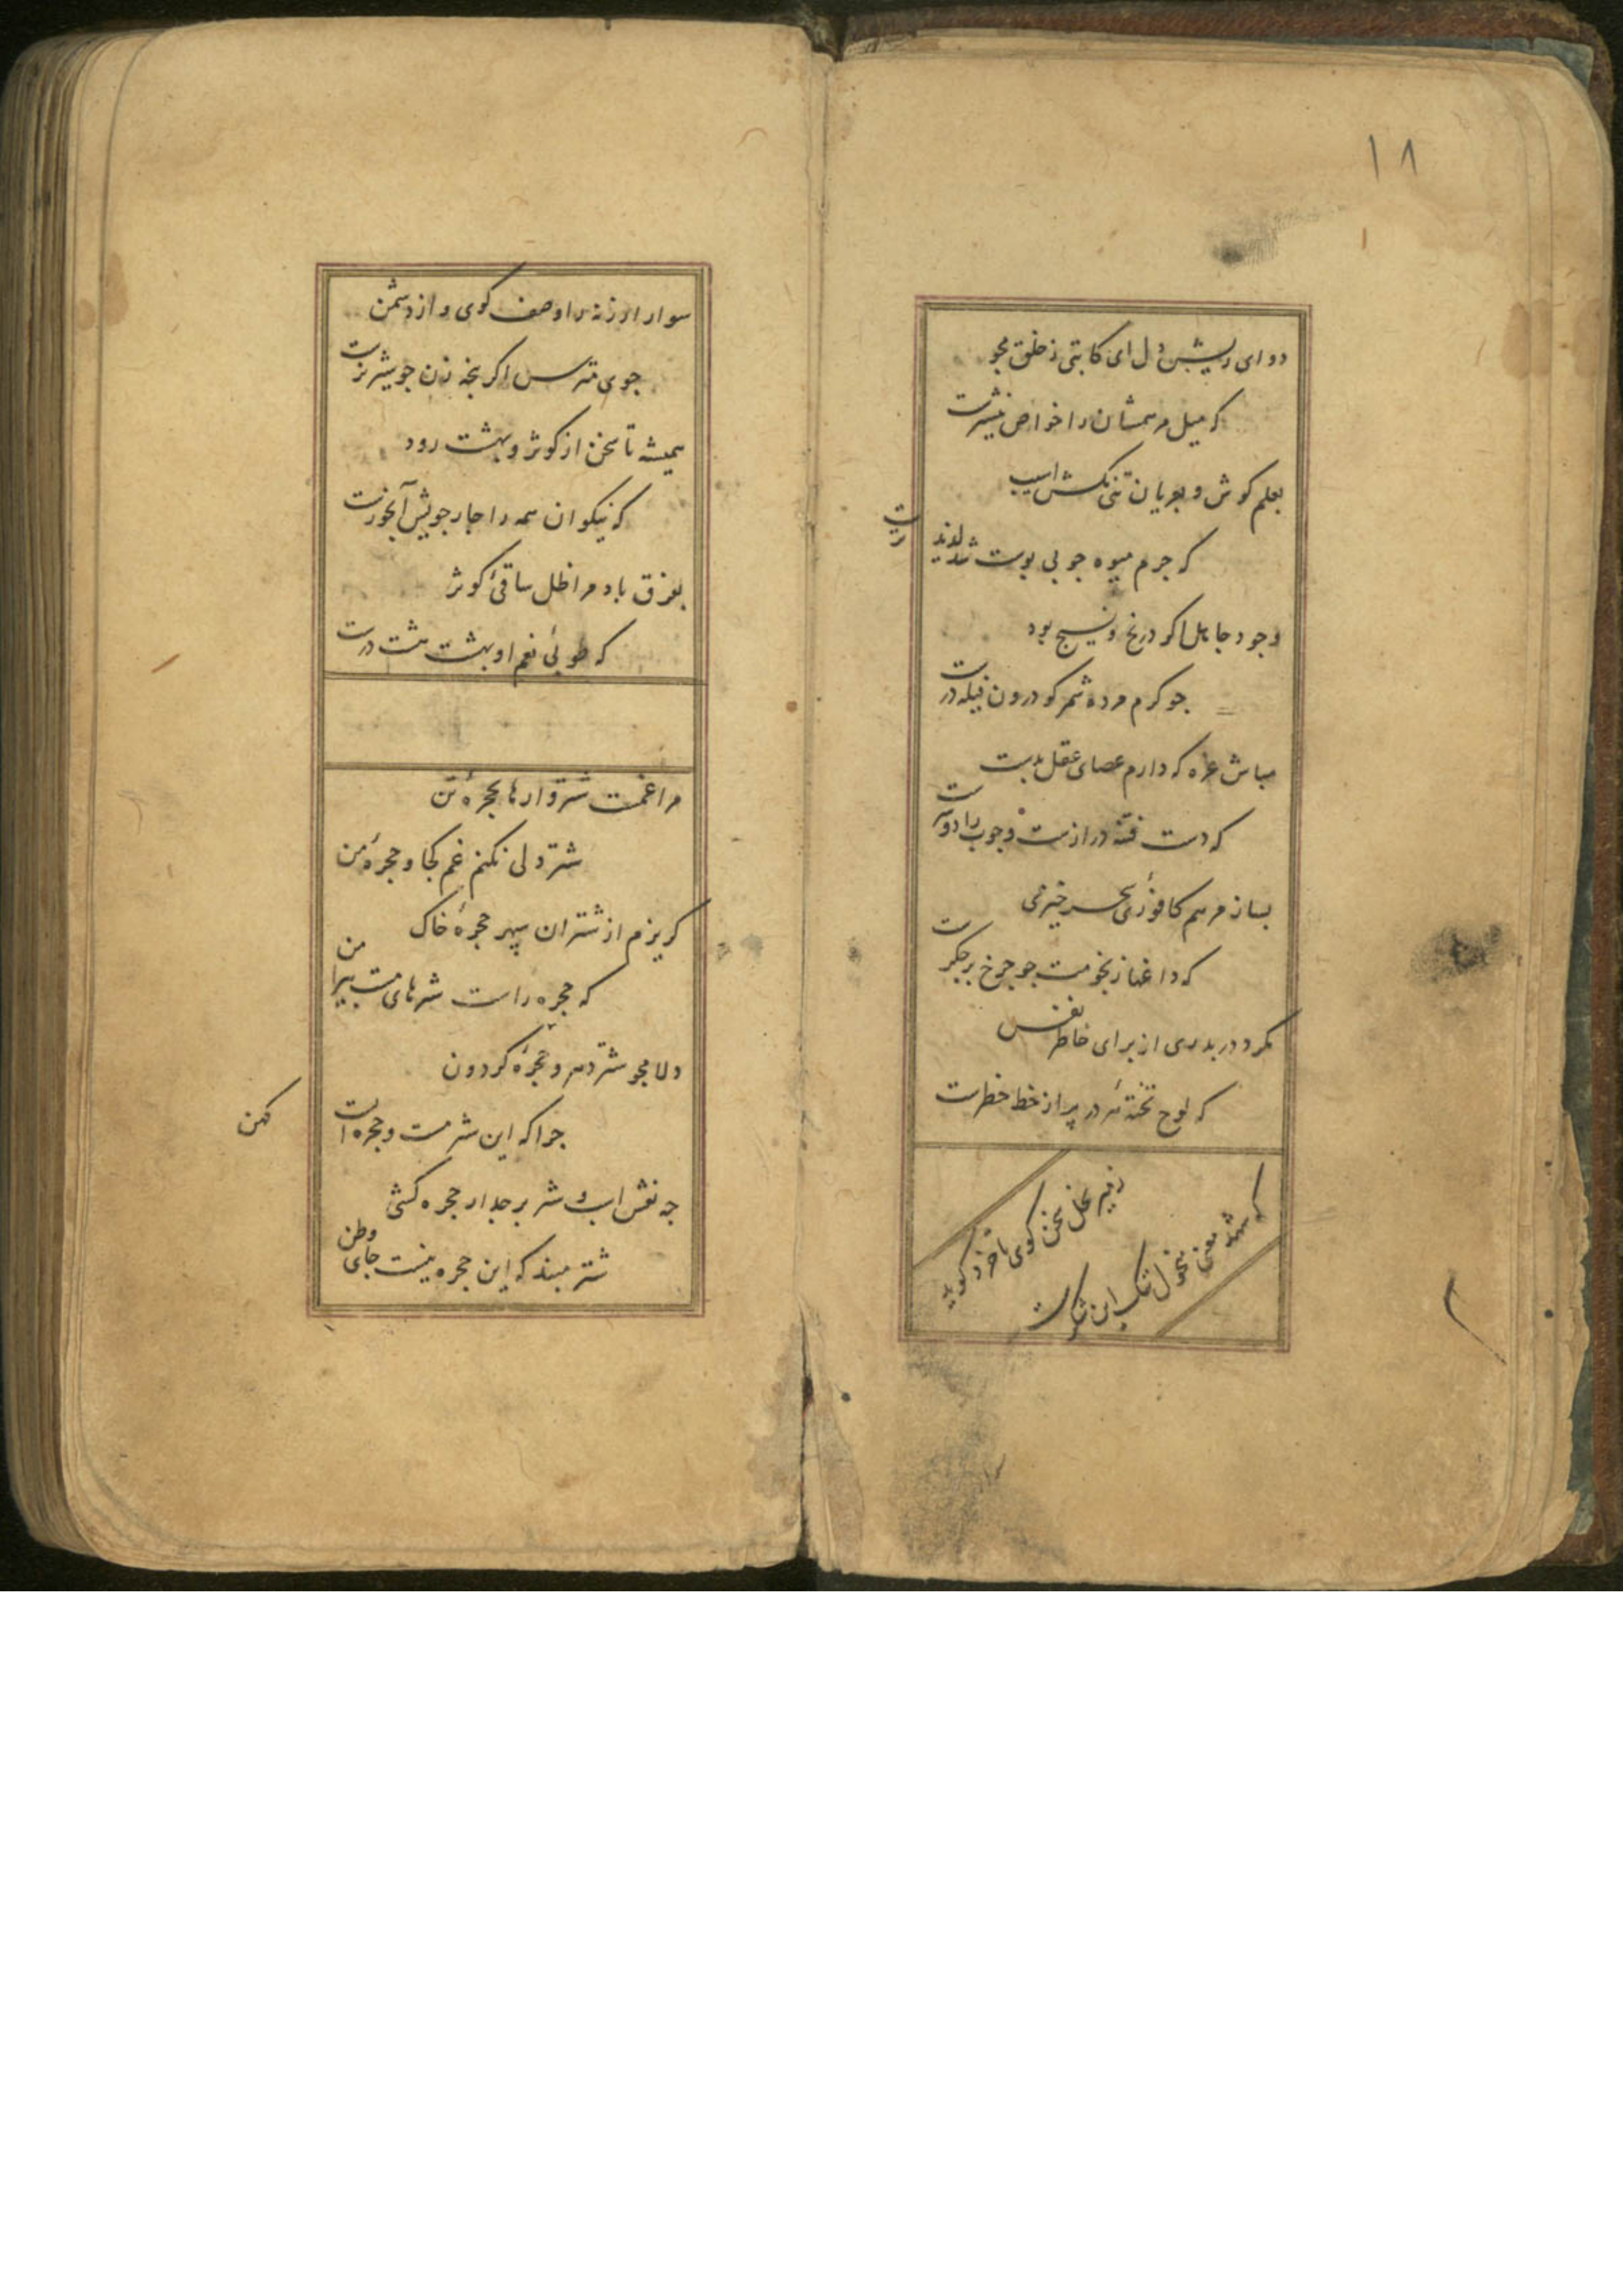 ۱۸
دوای ریش دل ای کاتبی ز خلق مجو
که میل مرهمشان را خواص نیشترست
بعلم کوش و بعریان تنی مکش اسیب
که جرم میوه چو بی پوست شد لذیذ ترست
وجود جاهل اگر در نخ و نسیج بود
چو کرم مرده شمر کو درون پیله درست
مباش غره که دارم عصای عقل بدست
که دست فتنه درازست و چوب را دو سرست
بساز مرهم کافوری سحر خیزی
که داغها ز نجومت چو چرخ بر جکرست
مکرد در بدری از برای خاطر نفس
که لوح تخته هر در پر از خط خطرست
ز غیر نخل سخن کوی با خرد کوید
که شهد معنی منحول تنک این شکرست
سوار ارزنه را وصف کوی و از دشمن
جوی مترس اکر پنجه زن چو شیر نرست
همیشه تا سخن از کوثر و بهشت رود
که نیکوان همه را جار جویش آبخورست
بفرق باد مرا ظل ساقی کوثر
که طوبی نعم او بهشت هشت درست
مرا غمت شتروارها بحجره تن
شتر دلی نکنم غم کجا و حجره من
کریزم از شتران سپهر حجره خاک
که حجره راست شترهای مست پیرامن
دلا مجو شتر دهر و حجره کردون
چرا که این شتر مست و حجره است
کهن
چه نقش اسب و شتر بر جدار حجره کشی
شتر مبند که این حجره نیست جای وطن